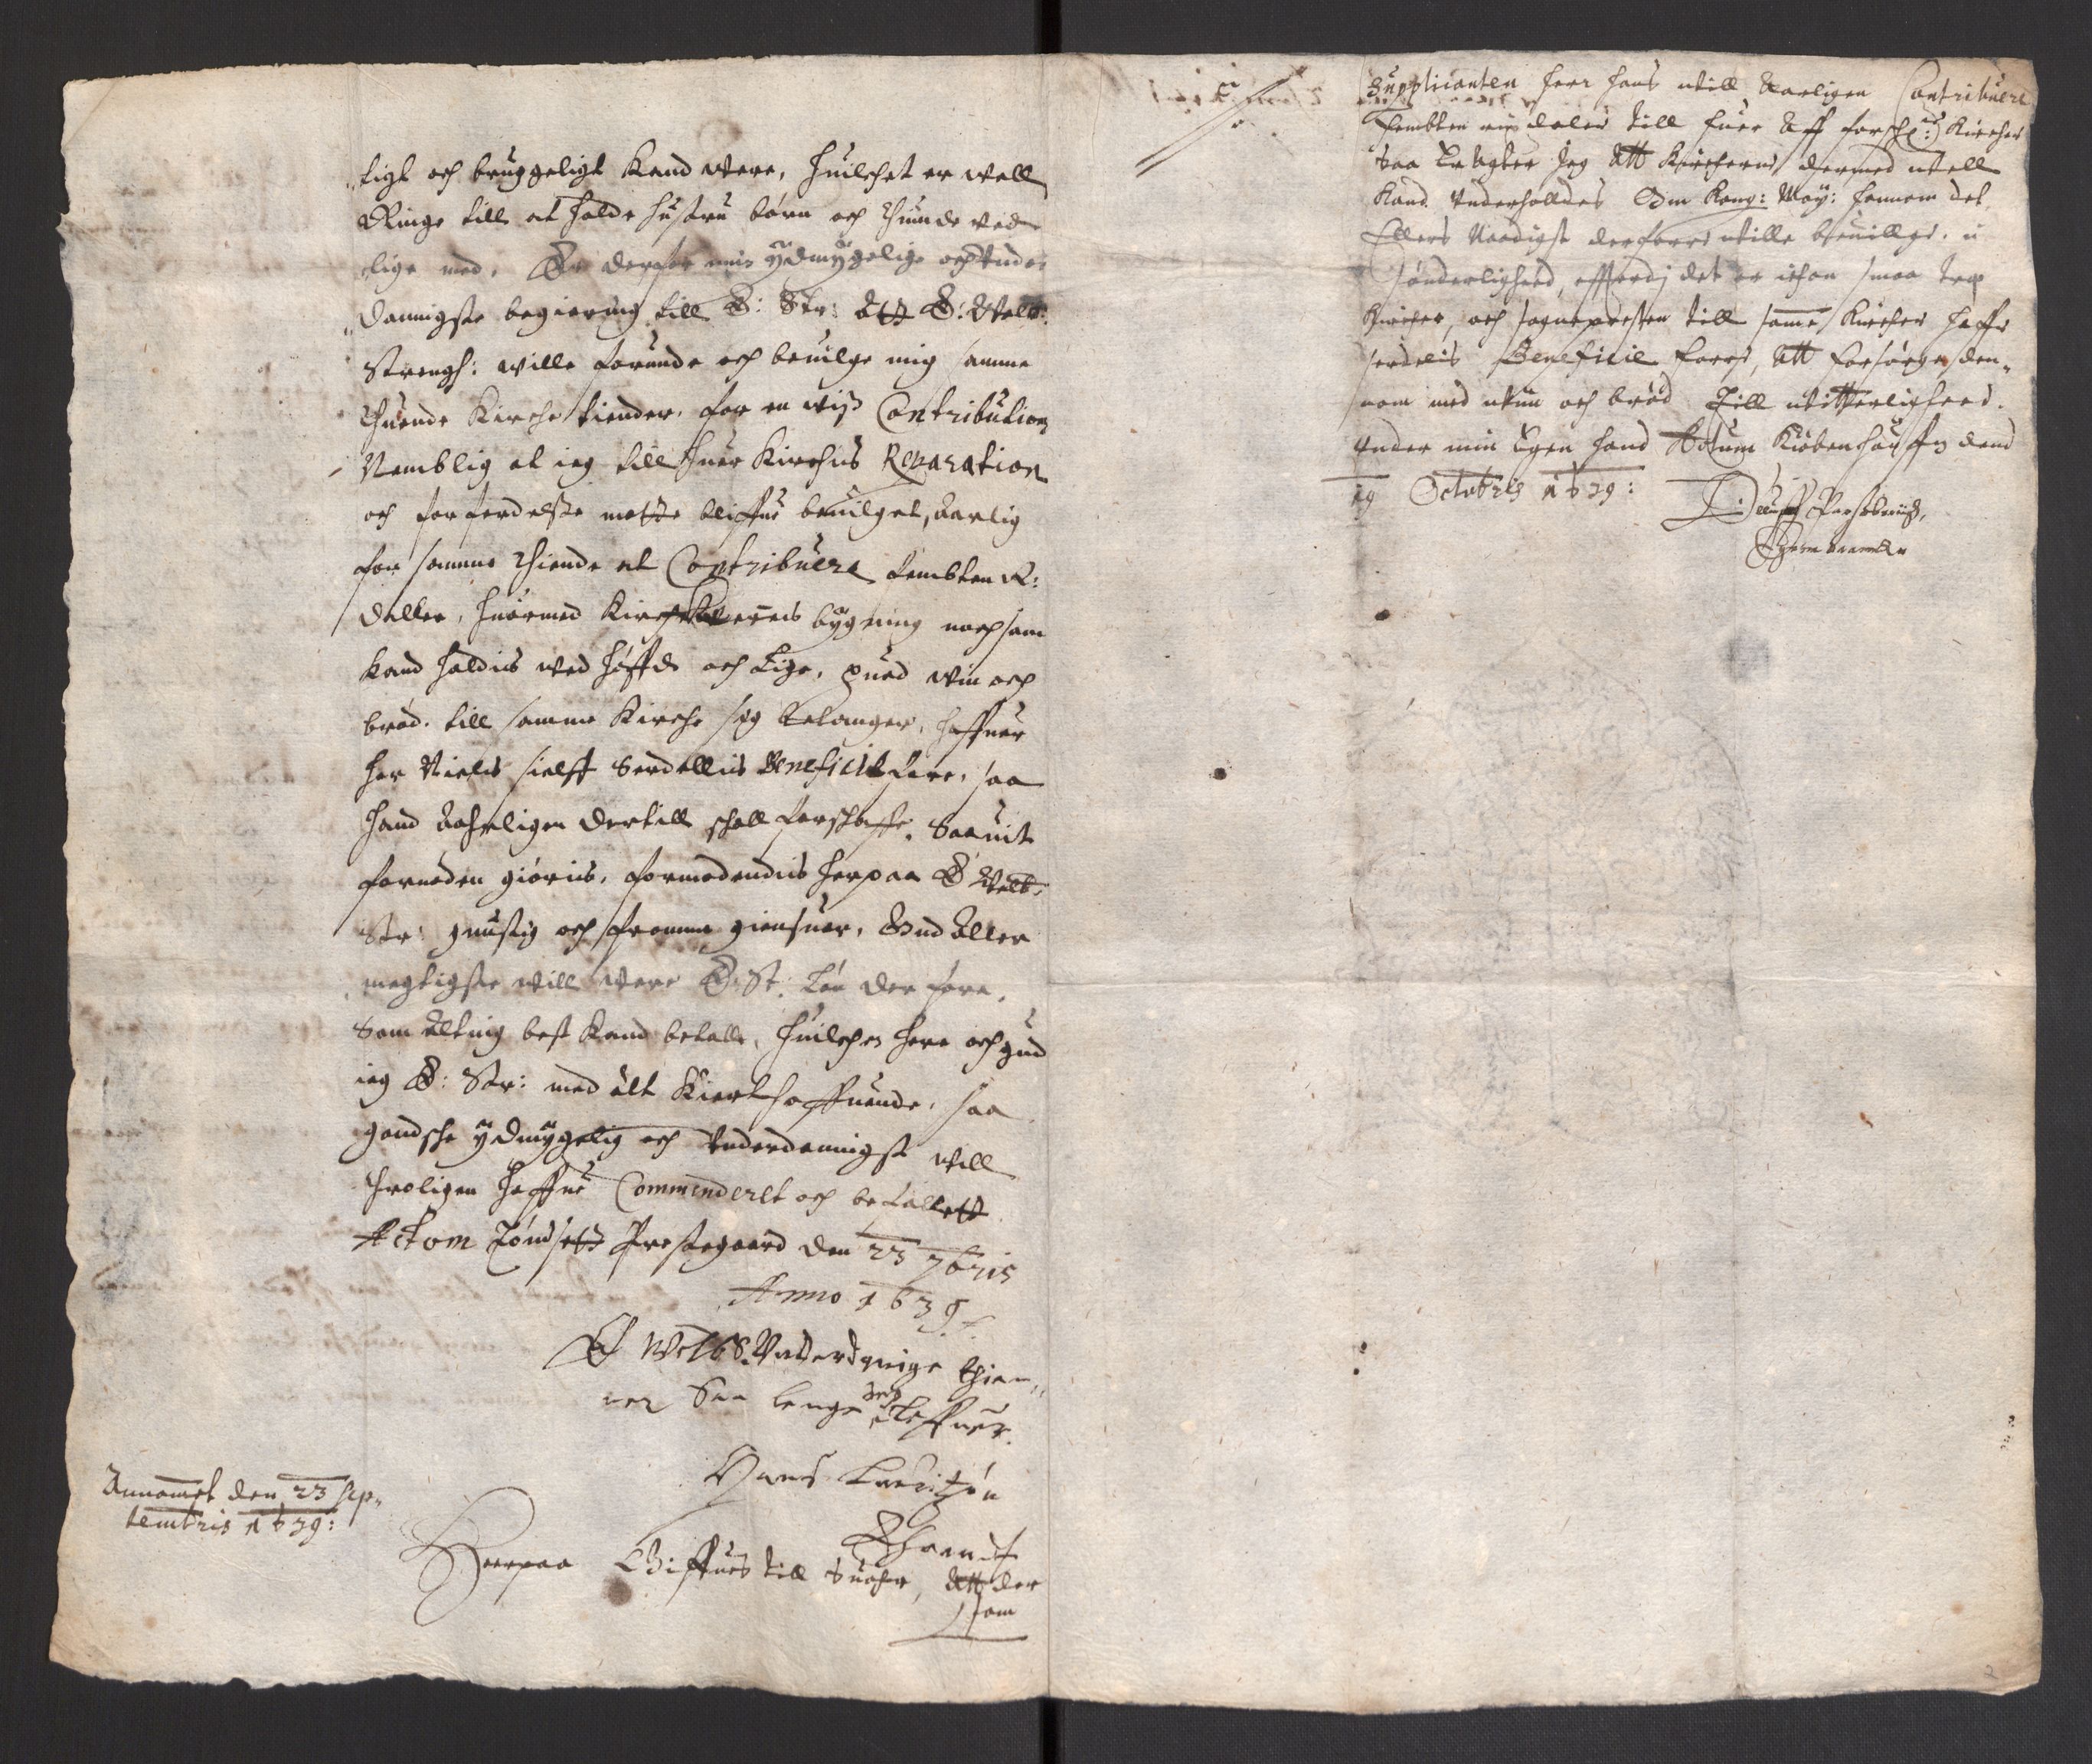 tigt och bruggeligt Kand were, huilchet er well
Ringe till at holde hustru børn och thiunde
med. Er derfor min ydmygelige och vnder
danigste begiering till E: Str: att E: Welb:
Strengh: wille forunde och beuilge mig samme
thuende Kirche tiender, for en wiss Contribution
Nemblig at ieg till huer Kirchis Reparation
och forferdelsse motte bliffue beuilget, Aarlig
for samme thiende at Contribuere fembten R:
daller, huormed Kircherens bygning nochsom
kand holdis wed heffd och lige, huad win och
brød till samme Kirche sig belanger, haffuer
her Niels sielff Serdellis Beneficie fore, saa
hand Aahrligen dertill schall forschaffe. Saauit
fornøden giøris, formodendis herpaa E Welb:
Str: gunstig och fromme giensuar, Gud Aller
megtigste will were E: St: løn derfore,
Som Alting best Kand betalle, huilchen herre och gud
ieg E: Str: med alt Kiert haffuende, saa
gandsche ydmygelig och vnderdanigst will
troligen haffue Commenderet och befallett
Actom Prestegaard den 23 7bris
Anno 1639
E Welb S. Vnderdanige thien,,
ner Saa lenge Jeg leffuer.
Hans Lauritzøn
Annamet den 23 Sep-
tembris 1639:
Heerpaa Giffues till suahr, Att der
som
Supplicanten herr Hans will Aarligen Contribuere
fembten rix daler till huer Aff forsch:ne Kircher
Saa Eragter Jeg Att Kircherne dermed well
Kand vnderholldes Om Kong: May: hannem det
Ellers Naadigst derforre wille beuillge. i
sønderlighed, effterdj det er ichon smaa træ
Kircher, och sognepresten till samme Kircher haffr
serdelis Beneficie forre, Att forsørge den,,
nom med wiin och brød Till witterlighed.
vnder min Egen hand Actum Kiøbenhaffn dend
19 Octobris 1639:
Oluff Parsberg,
Egen haand